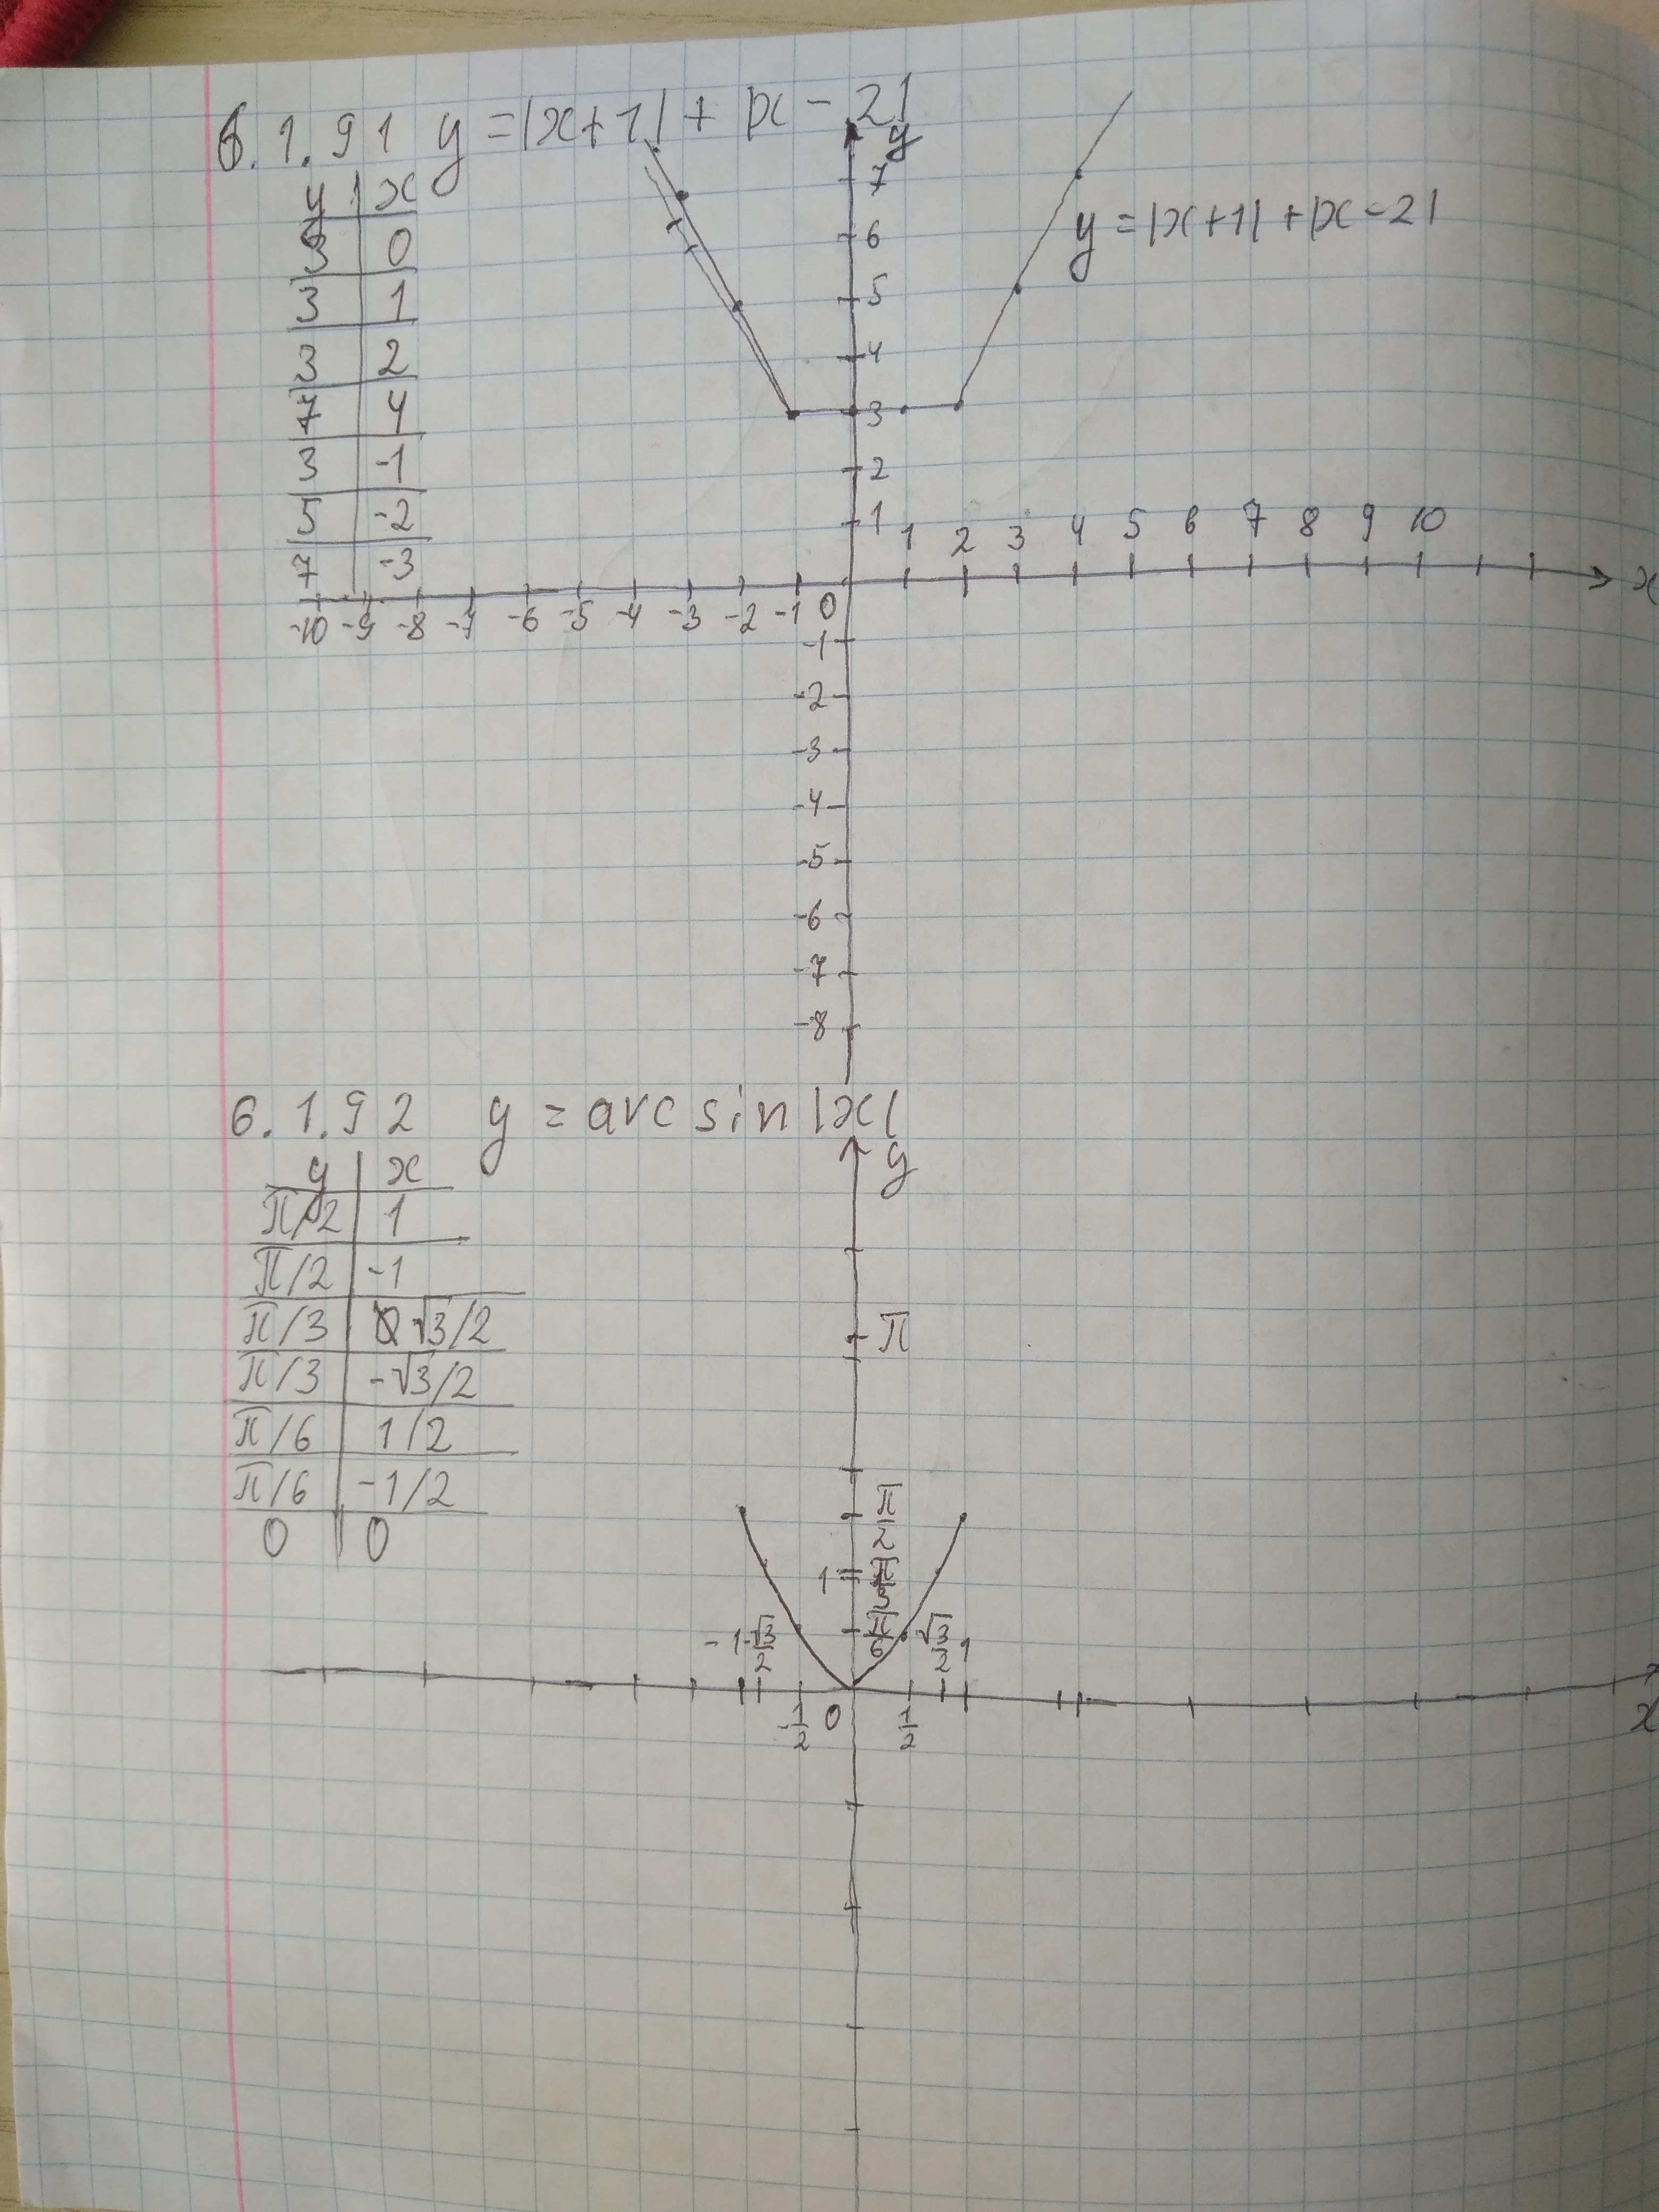 6.1.91 y = |x+1| + |x-2|
y x
3 0
3 1
3 2
7 4
3 -1
5 -2
7 -3
y
7
6
5
4
3
2
1
y = |x+1| + |x-2|
1 2 3 4 5 6 7 8 9 10
x
-10 -9 -8 -7 -6 -5 -4 -3 -2 -1 0
-1
-2
-3
-4
-5
-6
-7
-8
6.1.92 y = arcsin|x|
y x
π/2 1
π/2 -1
π/3 √3/2
π/3 -√3/2
π/6 1/2
π/6 -1/2
0 0
y
π
π/2
1 π/3
π/6
-1 -√3/2 √3/2 1
-1/2 0 1/2
x